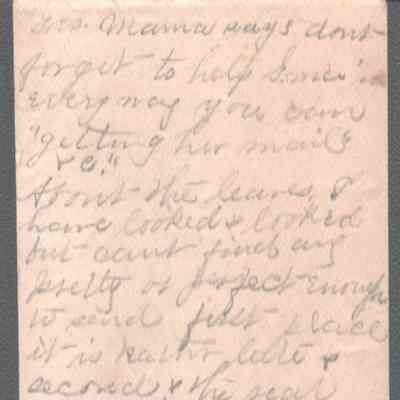 Mama says dont
forget to help in
every way you can
"getting her mail &
c."
About the leaves, I
have looked & looked
but cant find any
pretty or perfect enough
to send first place
it is rather late &
second & the real